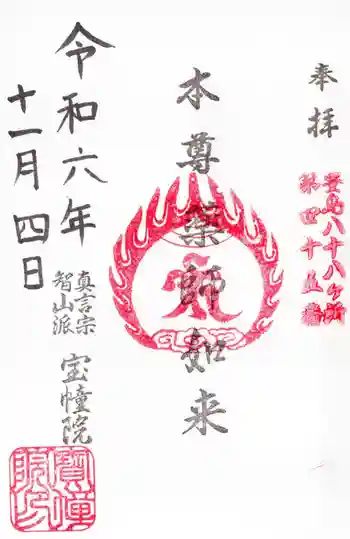 奉拝
豊島八十八ヶ所
第四十五番
本尊薬師如来
令和六年
十一月四日
真言宗
智山派
宝幢院
寶幢院印